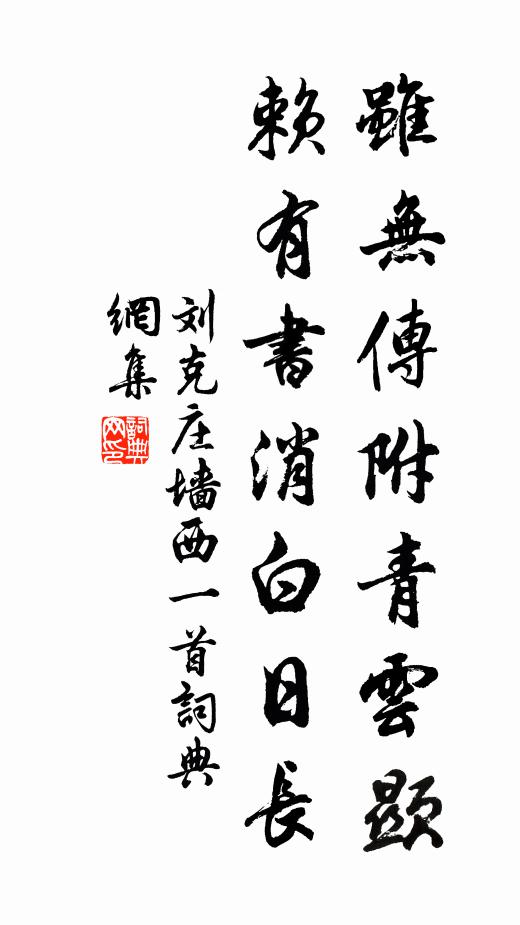 雖無傳附青雲顯
賴有書消白日長
刘克庄墙西一首詞典
網集
詞典网印